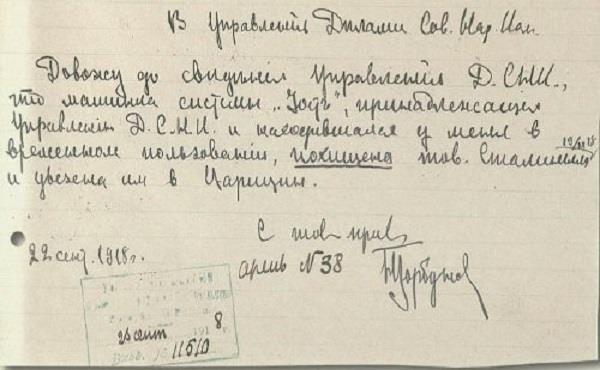 В Управленіе Делами Сов. Нар. Ком.
Довожу до сведения Управленія Д. С.Н.К.,
что машинка системы „Іостъ", принадлежащая
Управленію Д. С.Н.К. и находившаяся у меня в
временном пользованіи, похищена тов. Сталиным
и увезена им в Царицын.
С тов. прив.
22 сент. 1918 г.
архив N 38
Горбунов
26 сент 191 8 г.
11510